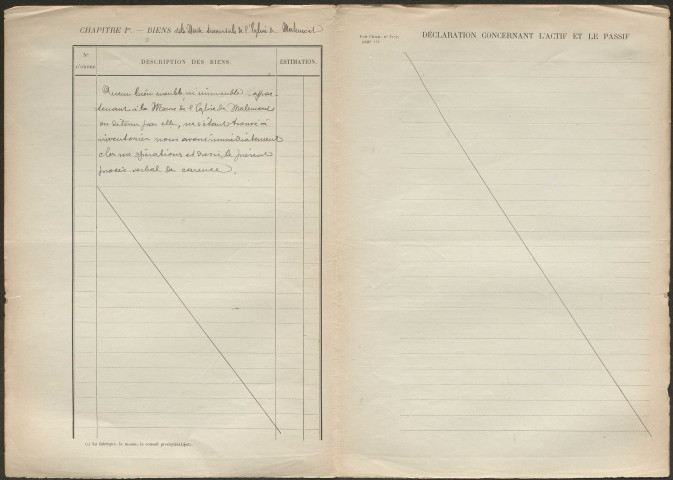 CHAPITRE Ier. — BIENS de la Mense succursale de l'Eglise de
Nº
D'ORDRE.
DESCRIPTION DES BIENS.
ESTIMATION.
Aucun bien meuble, ni immeuble appar-
tenant à la Mense de l'Eglise de
ou détenu par elle, ne s'étant trouvé à
inventorier nous avons immédiatement
clos nos opérations et dressé le présent
procès-verbal de carence.
(1) La fabrique, la mense, le conseil presbytéral, etc.
page
DÉCLARATION CONCERNANT L'ACTIF ET LE PASSIF